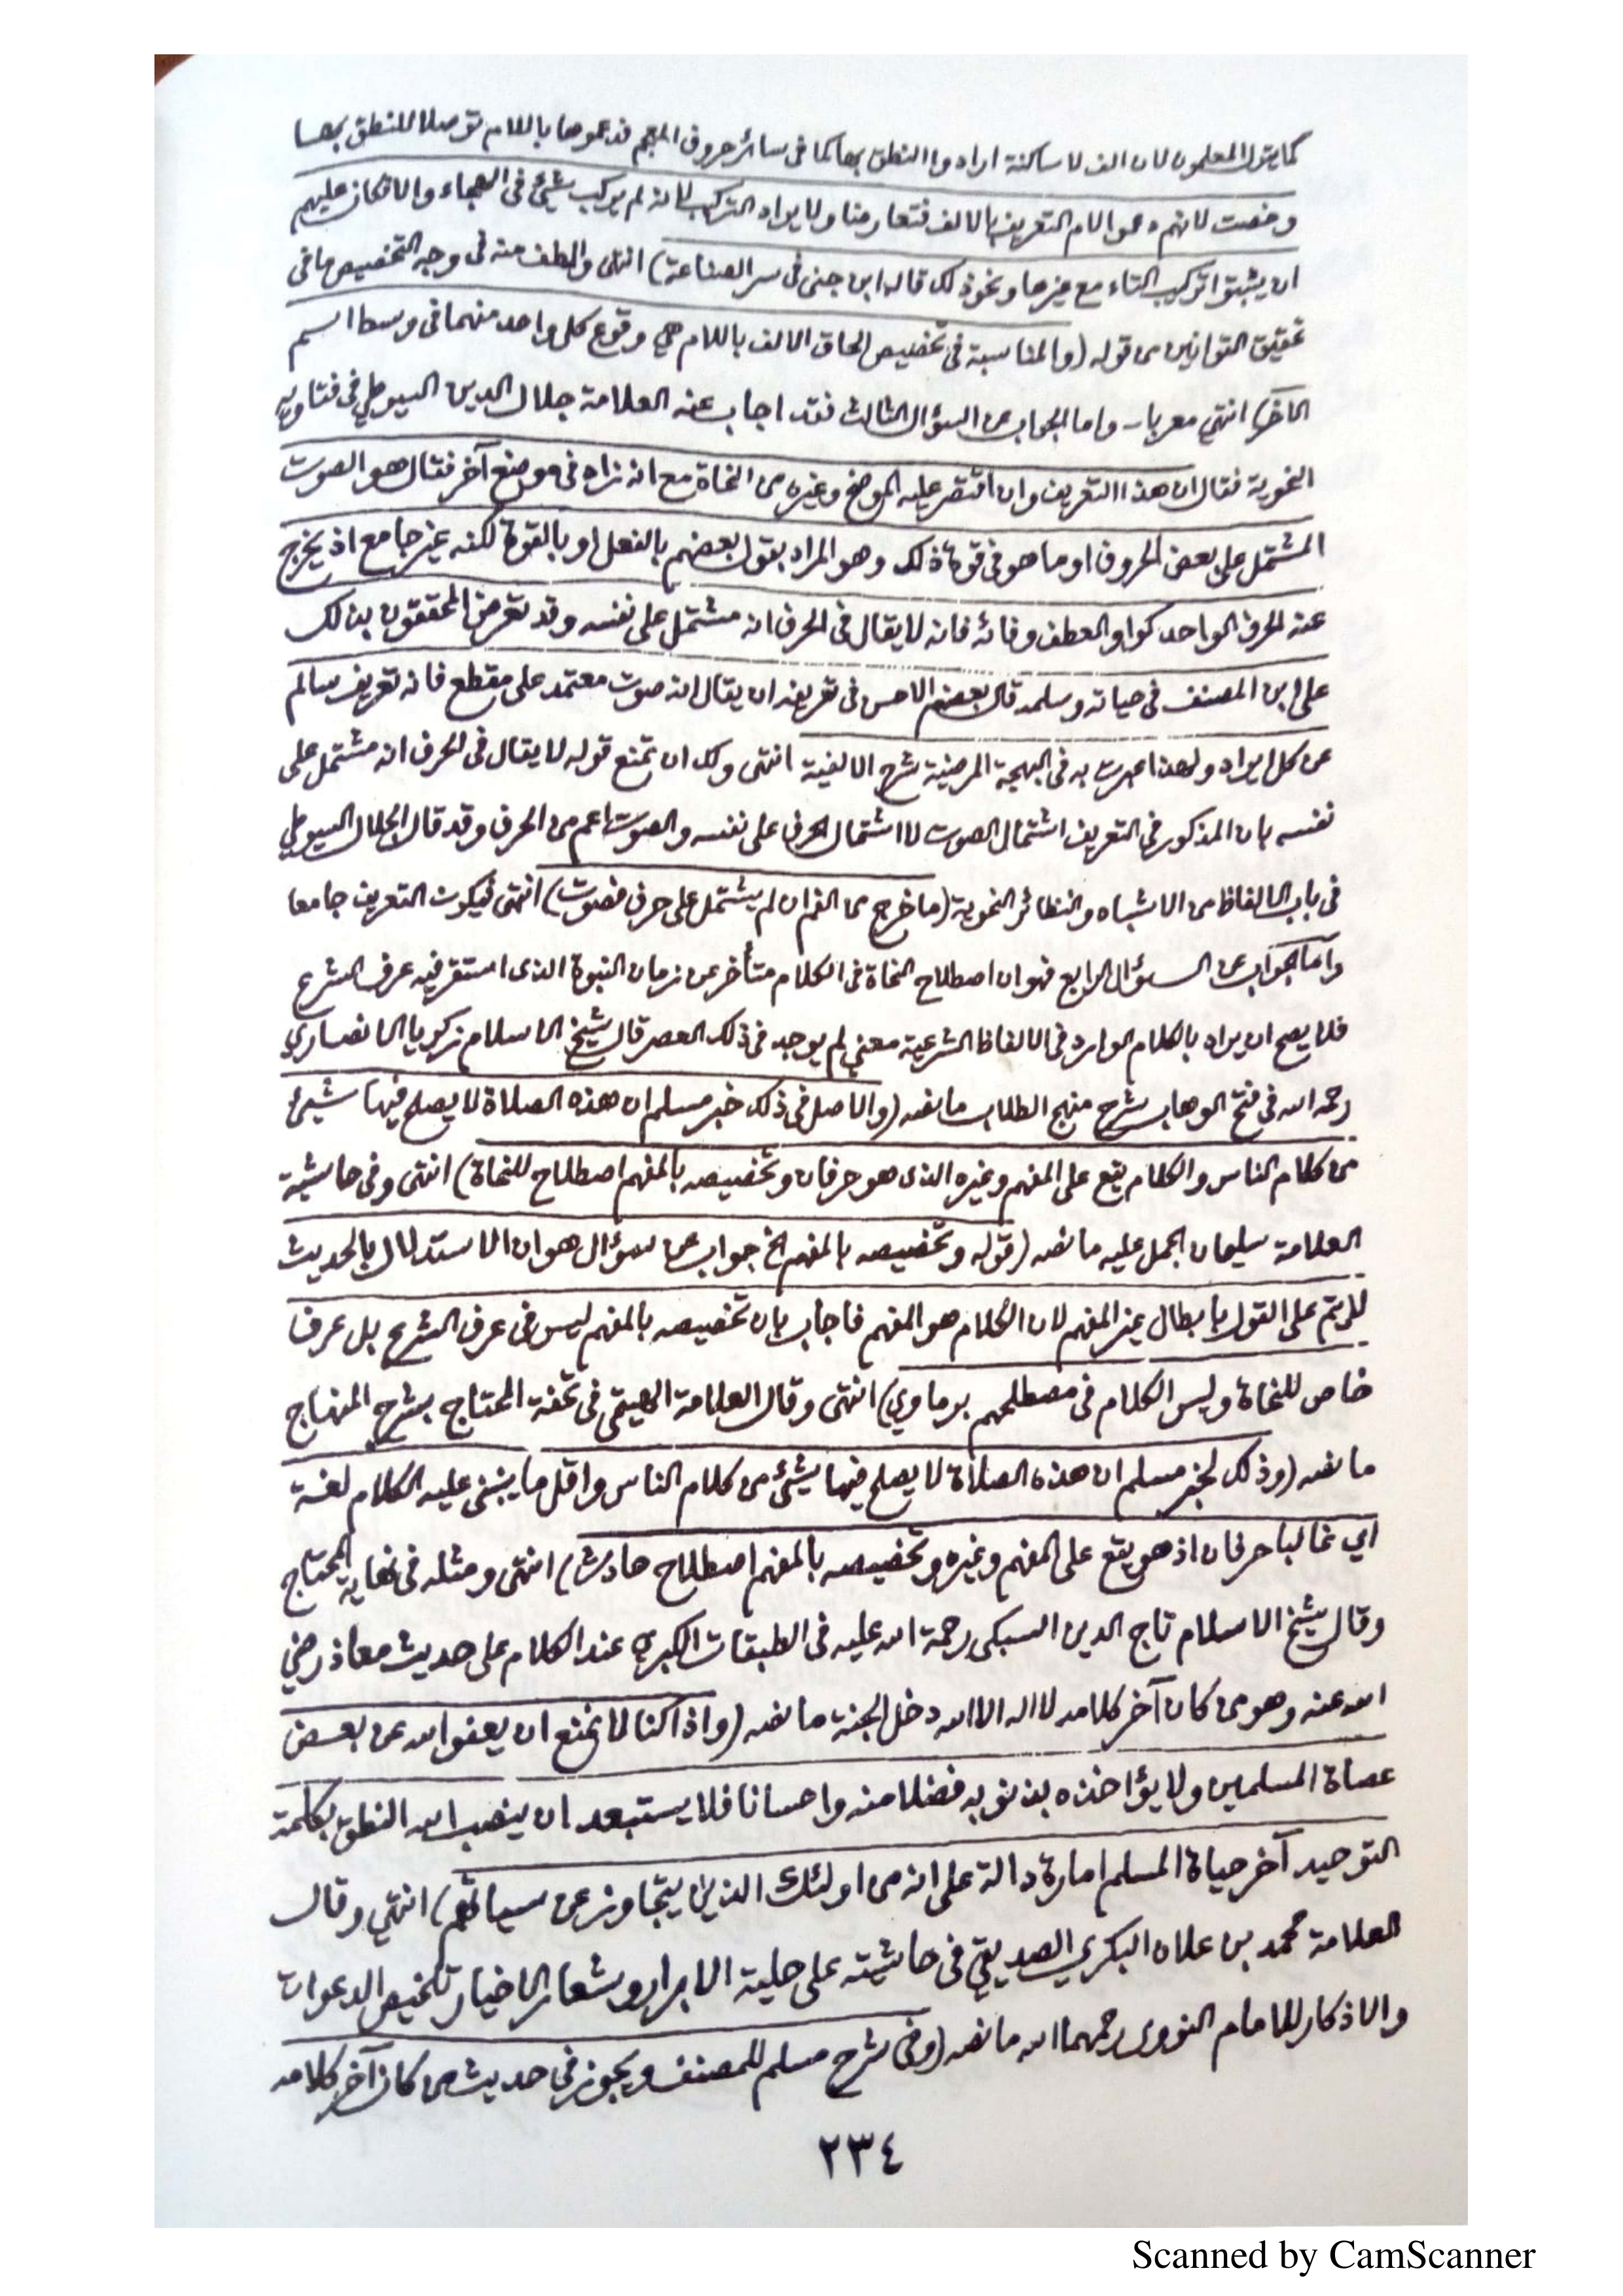 كما يقول المعلمون لان الف لا ساكنة ارادوا النطق بها كما في سائر حروف المعجم فدعموها باللام توصلا للنطق بها
وخصت لانهم دعموا لام التعريف بالالف فتعارضا ولا يراد التركيب لانه لم يركب شيئ في الهجاء والا فكان عليهم
ان يثبتوا تركيب التاء مع غيرها ونحو ذلك قاله ابن جنى في سر الصناعة) انتهى والطف منه في وجه التخصيص ما في
تحقيق القوانين من قوله (والمناسبة في تخصيص الحاق الالف باللام هي وقوع كل واحد منهما في وسط اسم
الآخر) انتهي معربا - واما الجواب عن السؤال الثالث فقد اجاب عنه العلامة جلال الدين السيوطي في فتاويه
النحوية فقال ان هذا التعريف وان اقتصر عليه الموضح وغيره من النحاة مع انه زاه في موضع آخر فقال هو الصوت
المشتمل على بعض الحروف او ما هو في قوة ذلك وهو المراد بقول بعضهم بالفعل او بالقوة لكنه غير جامع اذ يخرج
عنه الحرف الواحد كواو العطف وفائه فانه لا يقال في الحرف انه مشتمل على نفسه وقد تعرض المحققون بذلك
على ابن المصنف في حياته وسلمه قال بعضهم الاحسن في تعريفه ان يقال انه صوت معتمد على مقطع فانه تعريف سالم
عن كل ايراد ولهذا عبرت به في البهجة المرضية شرح الالفية انتهى ولك ان تمنع قوله لا يقال في الحرف انه مشتمل على
نفسه بان المذكور في التعريف اشتمال الصوت لا اشتمال الحرف على نفسه والصوت اعم من الحرف وقد قال الجلال السيوطي
في باب الالفاظ من الاشباه والنظائر النحوية (ما خرج من الفم ان لم يشتمل على حرف فصوت) انتهى فيكون التعريف جامعا
واما الجواب عن السؤال الرابع فهو ان اصطلاح النحاة في الكلام متأخر عن زمان النبوة الذى استقر فيه عرف الشرع
فلا يصح ان يراد بالكلام الوارد في الالفاظ الشرعية معني لم يوجد في ذلك العصر قال شيخ الاسلام زكريا الانصاري
رحمه الله في فتح الوهاب شرح منهج الطلاب ما نصه (والاصل في ذلك خبر مسلم ان هذه الصلاة لا يصلح فيها شيئ
من كلام الناس والكلام يقع على المفهم وغيره الذى هو حرفان وتخصيصه بالمفهم اصطلاح للنحاة) انتهى وفي حاشية
العلامة سليمان الجمل عليه ما نصه (قوله وتخصيصه بالمفهم الخ جواب عن سؤال هو ان الاستدلال بالحديث
لا يتم على القول بابطال غير المفهم لان الكلام هو المفهم فاجاب بان تخصيصه بالمفهم ليس في عرف الشرع بل عرف
خاص للنحاة وليس الكلام في مصطلحهم برماوي) انتهى وقال العلامة الهيتمى في تحفة المحتاج بشرح المنهاج
ما نصه (وذلك لخبر مسلم ان هذه الصلاة لا يصلح فيها شيئ من كلام الناس واقل ما ينبني عليه الكلام لغة
اي غالبا حرفان اذ هو يقع على المفهم وغيره وتخصيصه بالمفهم اصطلاح حادث) انتهى ومثله في نهاية المحتاج
وقال شيخ الاسلام تاج الدين السبكى رحمة الله عليه في الطبقات الكبرى عند الكلام على حديث معاذ رضي
الله عنه وهو من كان آخر كلامه لا اله الا الله دخل الجنة ما نصه (واذا كنا لا نمنع ان يعفو الله عن بعض
عصاة المسلمين ولا يؤاخذه بذنوبه فضلا منه واحسانا فلا يستبعد ان ينصب الله النطق بكلمة
التوحيد آخر حياة المسلم امارة دالة على انه من اولئك الذين يتجاوز عن سيآتهم) انتهي وقال
العلامة محمد بن علان البكري الصديقي في حاشيته على حلية الابرار وشعار الاخيار تلخيص الدعوات
والاذكار للامام النووى رحمهما الله ما نصه (وفي شرح مسلم للمصنف ويجوز في حديث من كان آخر كلامه
٢٣٤
Scanned by CamScanner